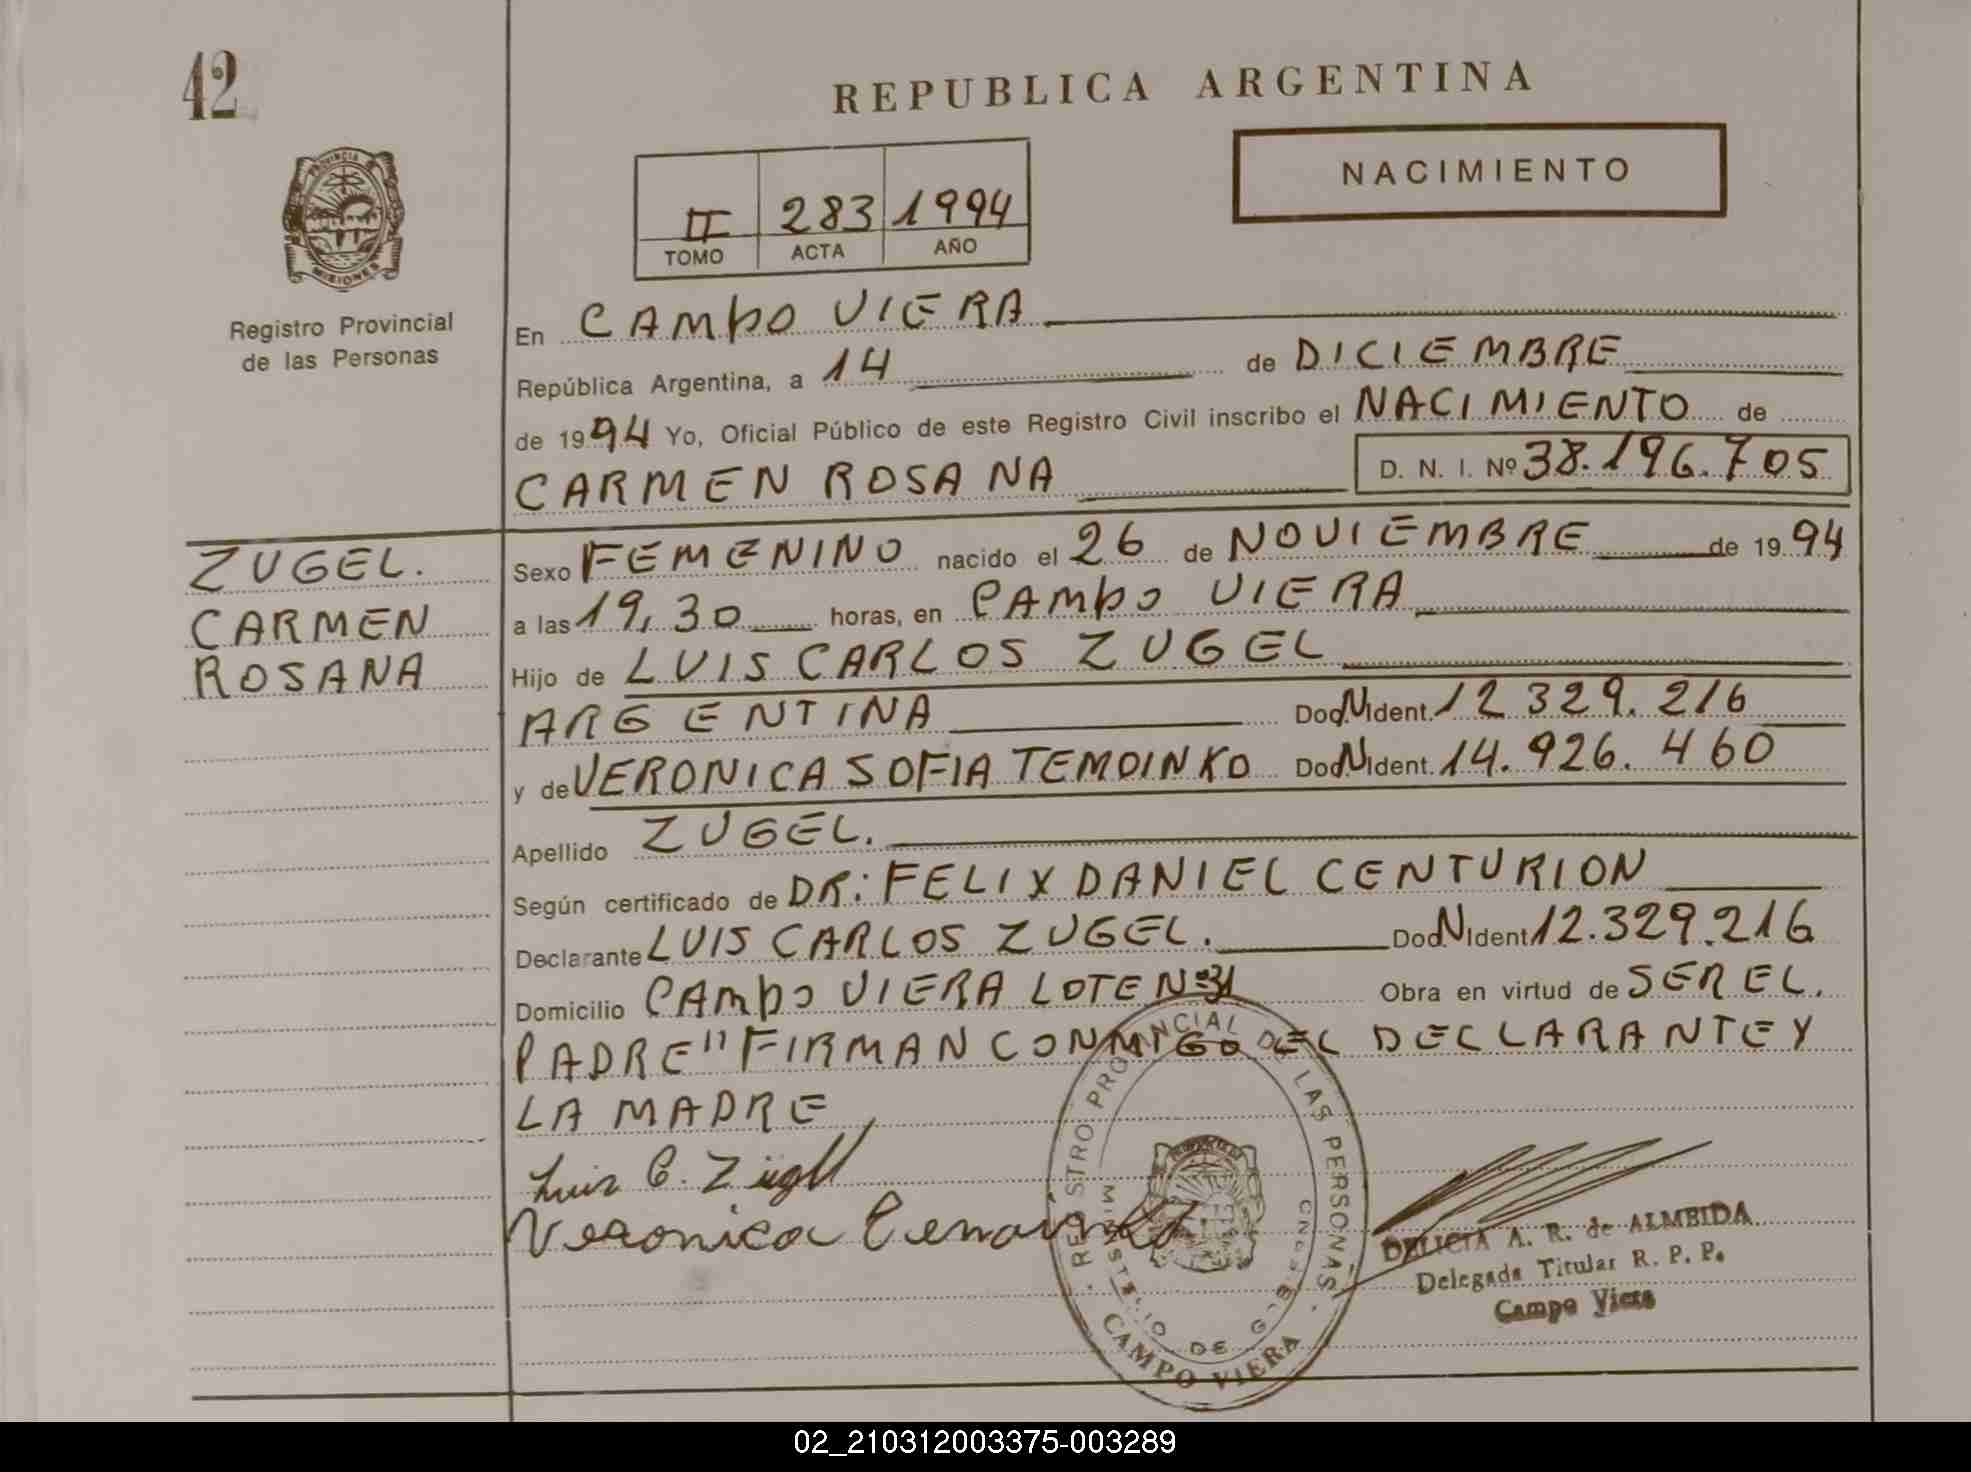 42
REPUBLICA ARGENTINA
NACIMIENTO
II 283 1994
TOMO ACTA AÑO
PROVINCIA DE
MISIONES
Registro Provincial
de las Personas
En CAMPO VIERA
República Argentina, a 14 de DICIEMBRE
de 1994 Yo, Oficial Público de este Registro Civil inscribo el NACIMIENTO de
CARMEN ROSANA D. N. I. Nº 38.196.705
ZUGEL.
CARMEN
ROSANA
Sexo FEMENINO nacido el 26 de NOVIEMBRE de 1994
a las 19,30 horas, en CAMPO VIERA
Hijo de LUIS CARLOS ZUGEL
ARGENTINA Doc.N.Ident. 12 329. 216
y de VERONICA SOFIA TEMOINKO Doc.N.Ident. 14. 926. 460
Apellido ZUGEL.
Según certificado de DR: FELIX DANIEL CENTURION
Declarante LUIS CARLOS ZUGEL. Doc.N.Ident. 12.329.216
Domicilio CAMPO VIERA LOTE Nº 31 Obra en virtud de SER EL.
PADRE" FIRMAN CONMIGO EL DECLARANTE Y
LA MADRE
Luis C. Zügell
Veronica
REGISTRO PROVINCIAL DE LAS PERSONAS
MINISTERIO DE GOB
CAMPO VIERA
DELICIA A. R. de ALMEIDA
Delegada Titular R. P. P.
Campo Viera
02_210312003375-003289